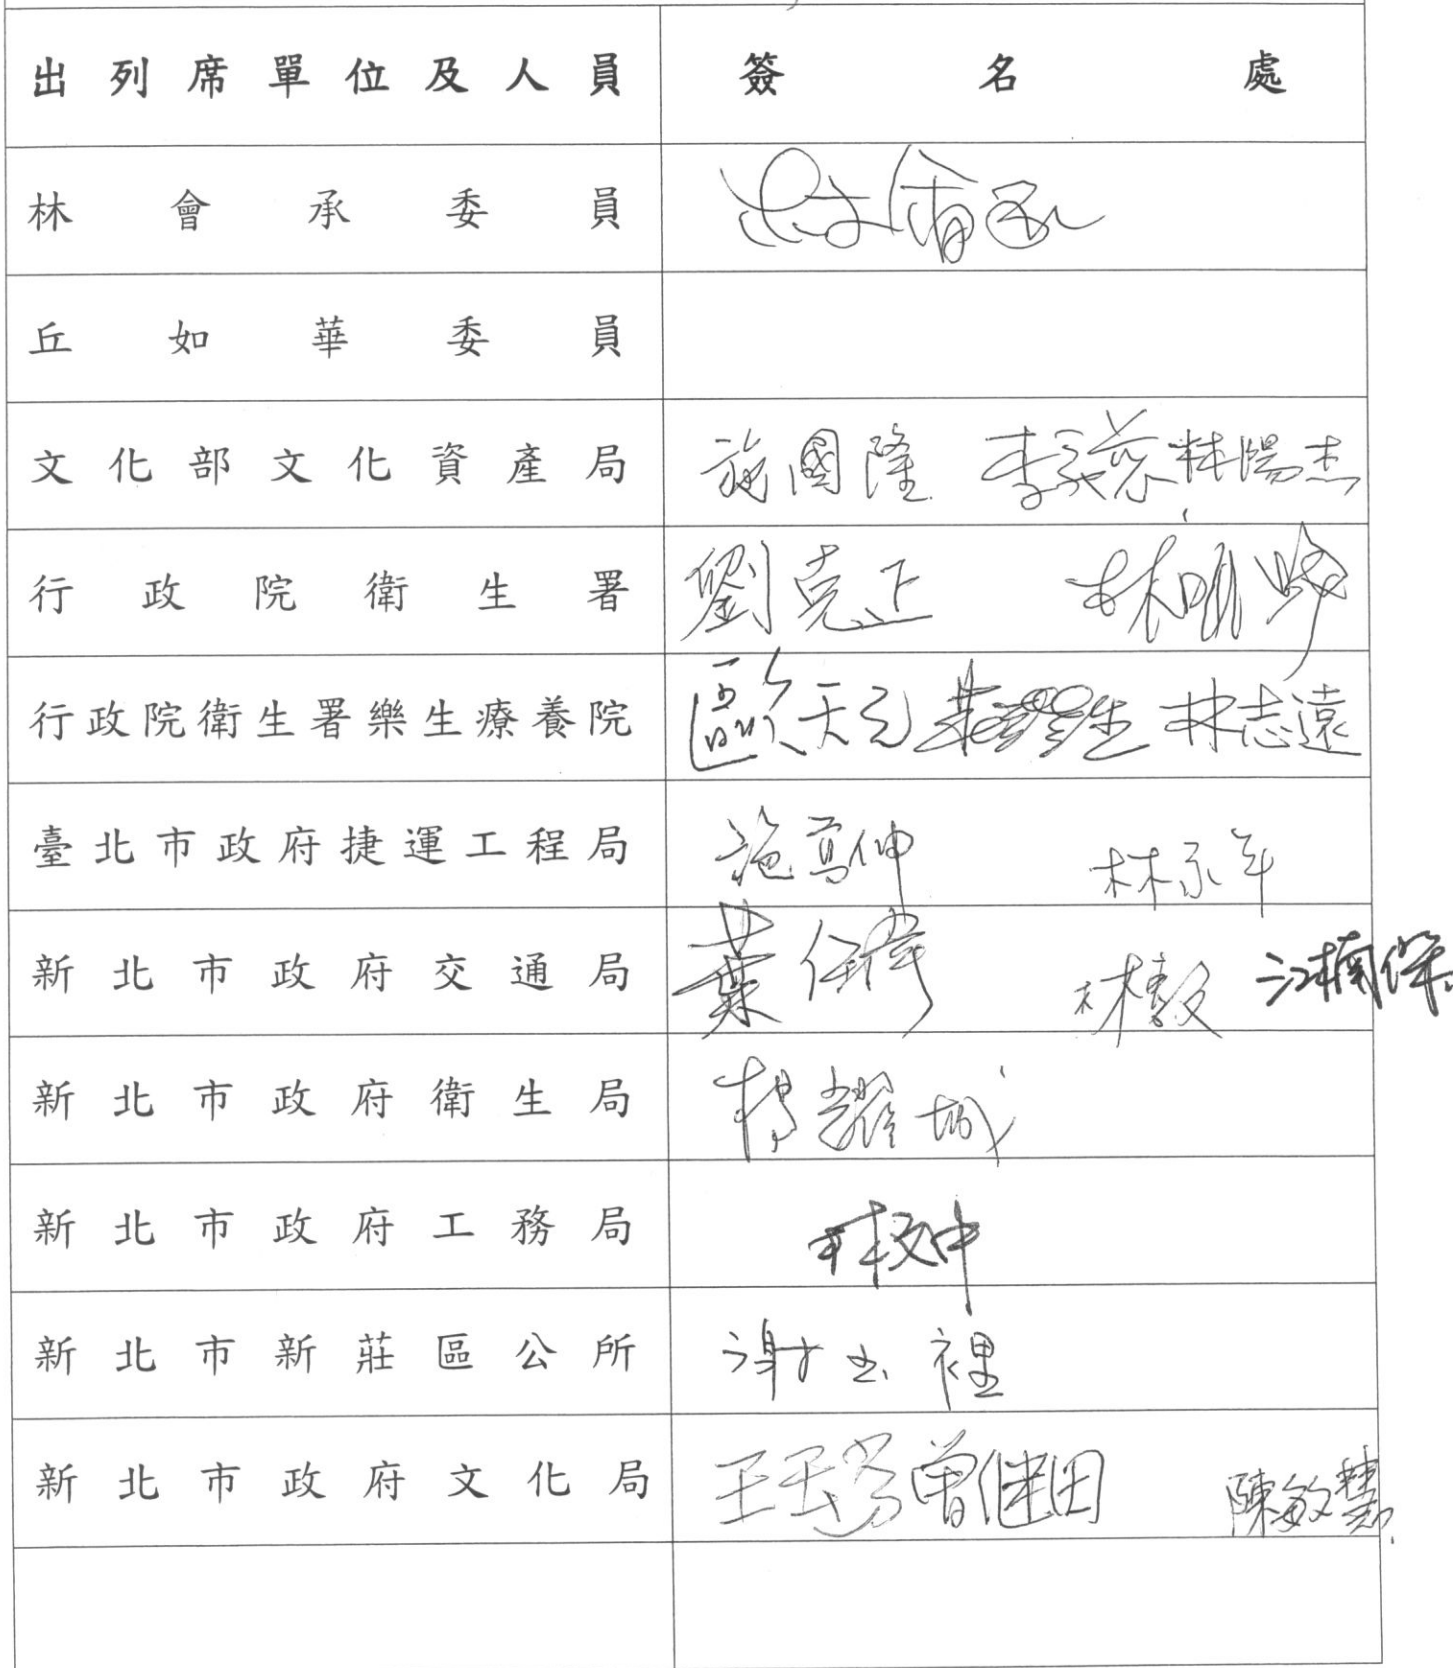 出列席單位及人員 簽名處
林會承委員 林會承
丘如華委員
文化部文化資產局 施國隆 李義慈 林陽杰
行政院衛生署 劉克正 林明
行政院衛生署樂生療養院 歐天元 林志遠
臺北市政府捷運工程局 施 仲 林永年
新北市政府交通局 葉 林 江楠傑
新北市政府衛生局 楊耀城
新北市政府工務局 林文中
新北市新莊區公所 謝玉裡
新北市政府文化局 王玉芬 曾继田 陳敏慧